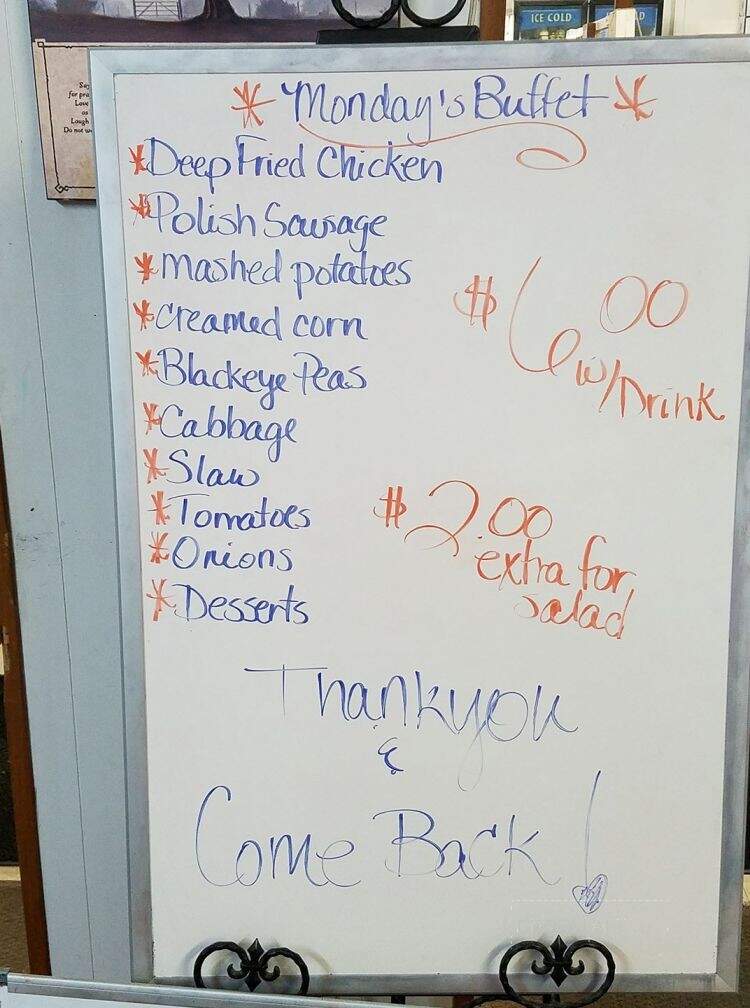 ICE COLD
Say
for pra
Love
as
Laugh
Do not w
* Monday's Buffet *
* Deep Fried Chicken
* Polish Sausage
* mashed potatoes
* creamed corn
* Blackeye Peas
* Cabbage
* Slaw
* Tomatoes
* Onions
* Desserts
$6.00
w/Drink
$2.00
extra for
salad
Thankyou
&
Come Back!